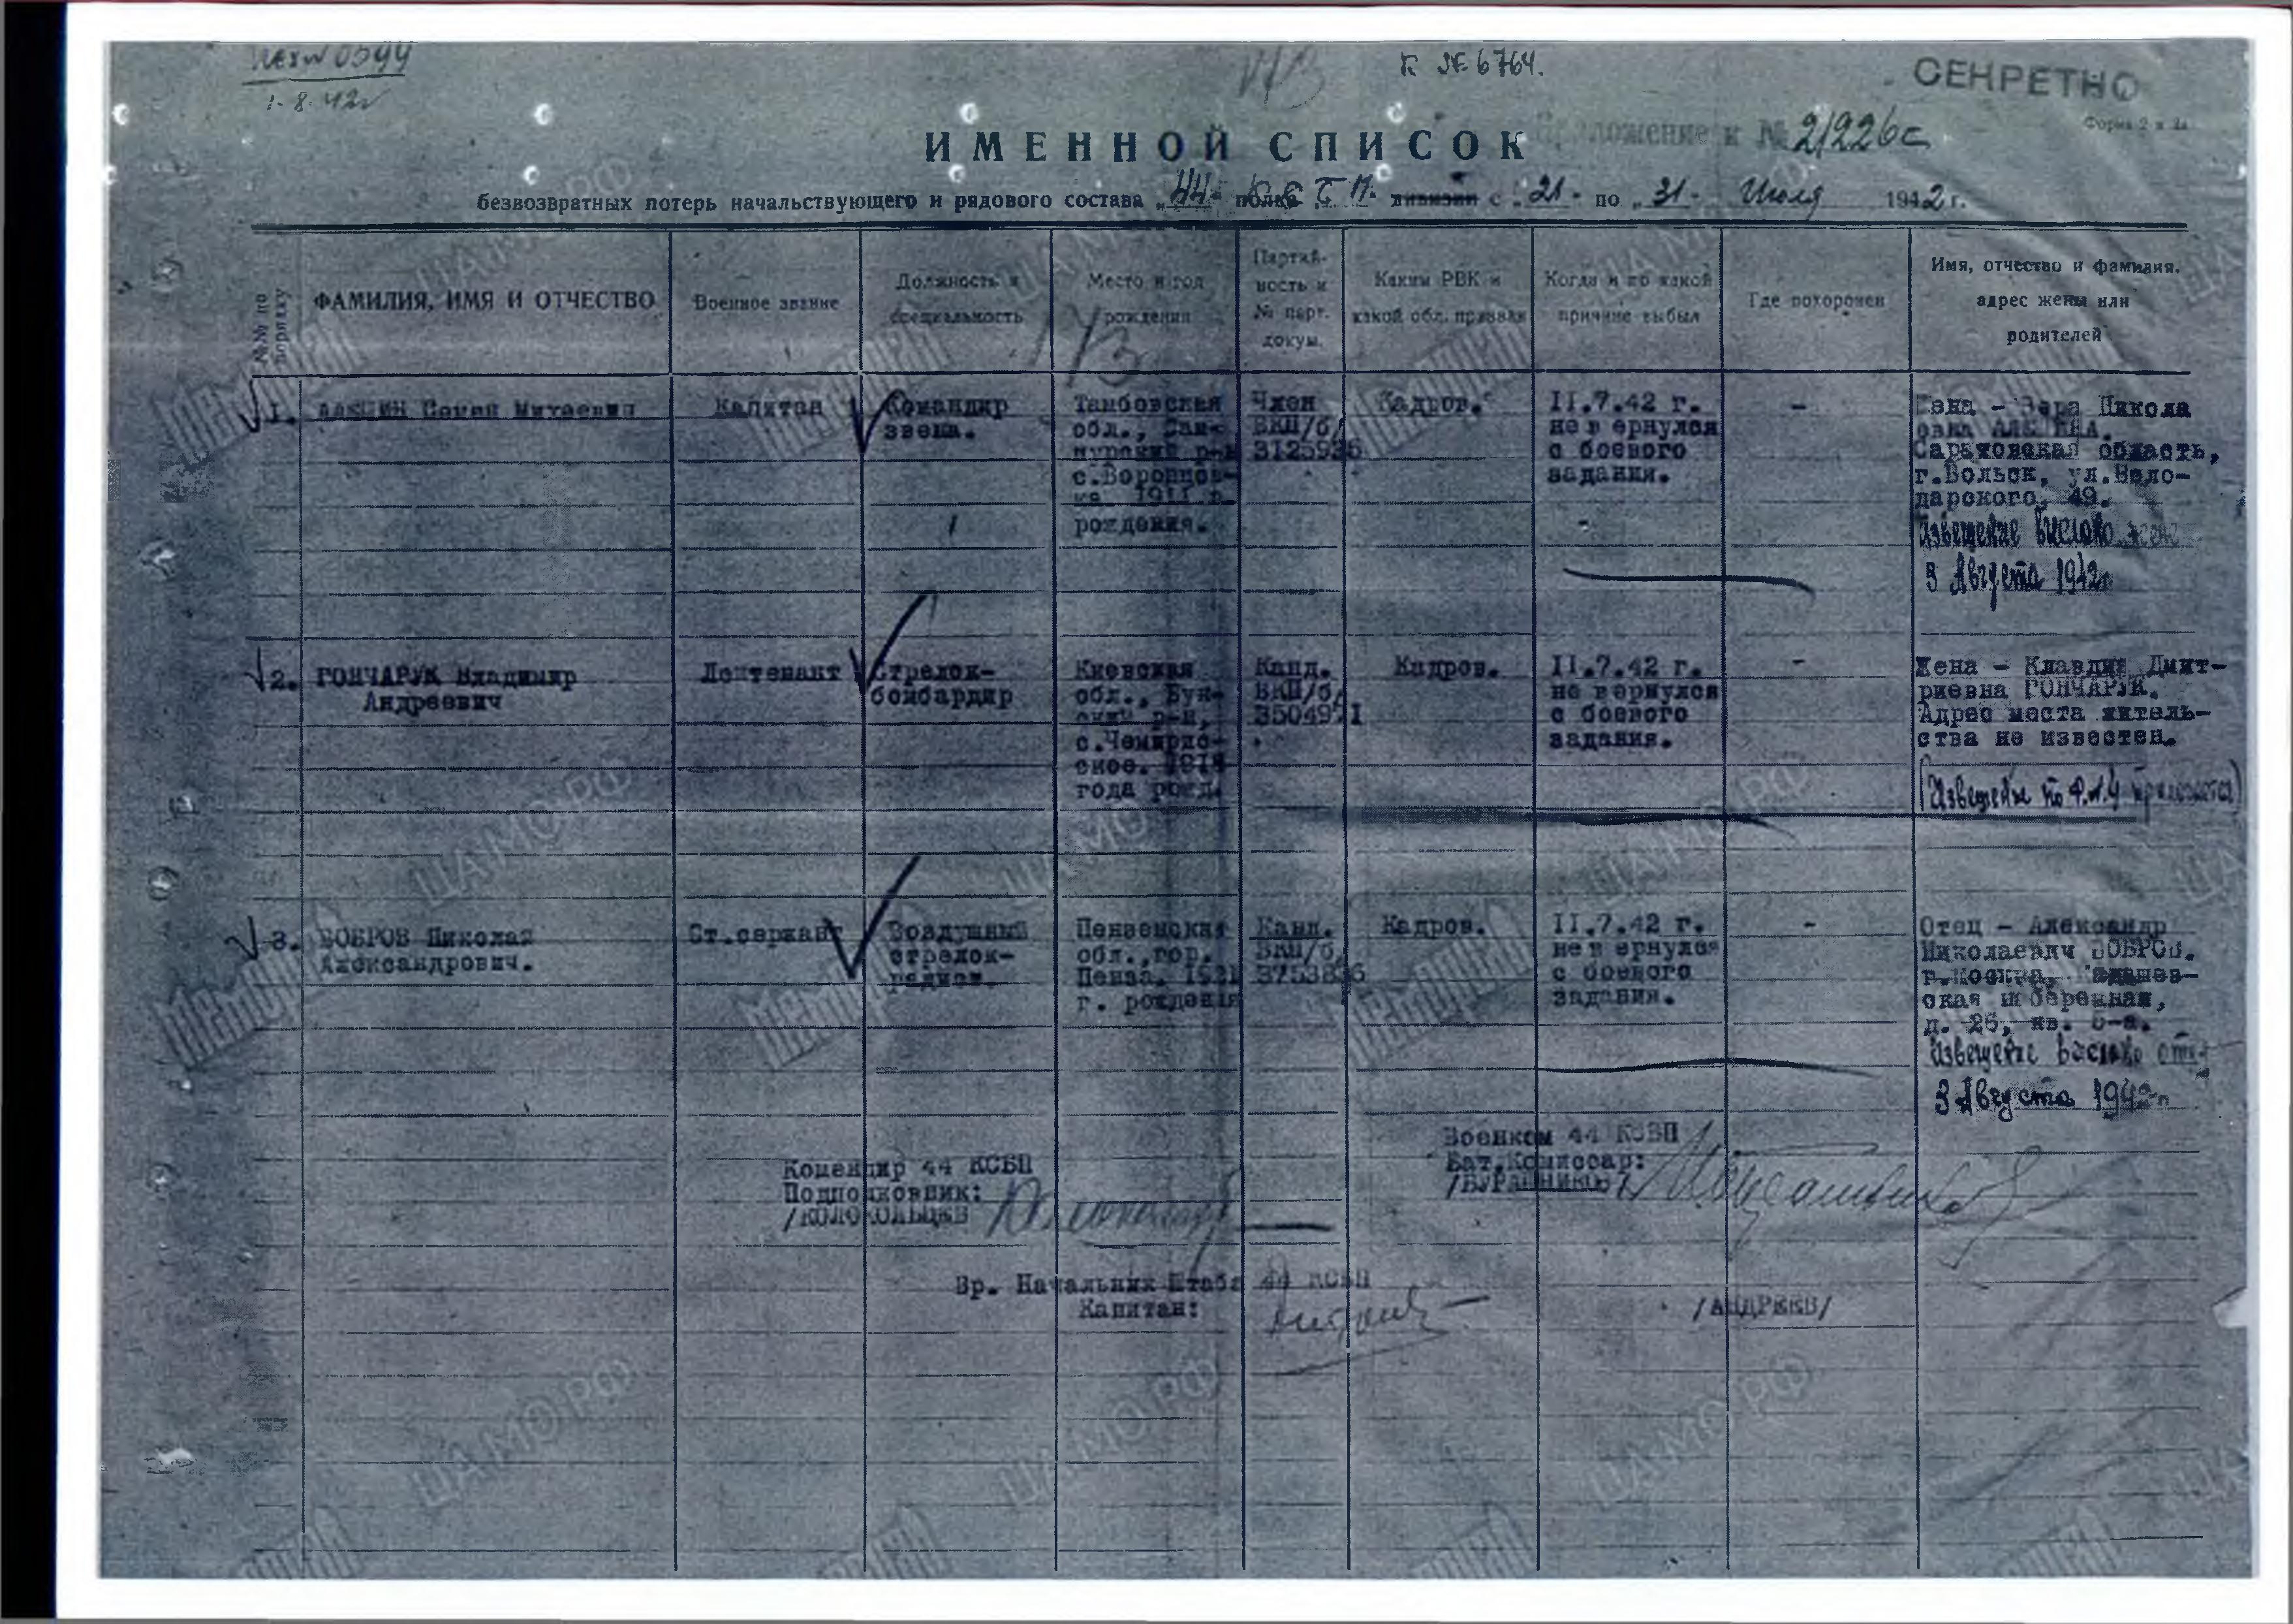 1.8.42г
К № 6764.
СЕКРЕТНО
Приложение к № 2/226с
Форма 2
ИМЕННОЙ СПИСОК
безвозвратных потерь начальствующего и рядового состава „44" полка дивизии с „21" по „31" Июля 1942 г.
№№ по порядку
ФАМИЛИЯ, ИМЯ И ОТЧЕСТВО
Военное звание
Должность и
специальность
Место и год
рождения
Партий-
ность и
№ парт.
докум.
Каким РВК и
какой обл. призван
Когда и по какой
причине выбыл
Где похоронен
Имя, отчество и фамилия,
адрес жены или
родителей
1.
Капитан
Командир
звена.
Тамбовская
обл.,
р-н
с.Воронцов-
ка 1911 г.
рождения.
Член
ВКП/б/
3125936
Кадров.
II.7.42 г.
не вернулся
с боевого
задания.
-
Жена - Вера Никола
евна
Саратовская область,
г.Вольск, ул.Воло-
дарского, 49.
Извещение выслано жене
3 Августа 1942г
2. ГОНЧАРУК Владимир
Андреевич
Лейтенант
Стрелок-
бомбардир
Киевская
обл., Бук-
ский р-н,
с.Чемерис-
ское. 1918
года рожд.
Канд.
ВКП/б/
Кадров.
II.7.42 г.
не вернулся
с боевого
задания.
-
Жена - Клавдия Дмит-
риевна ГОНЧАРУК.
Адрес места житель-
ства не известен.
(Извещение по ф.№4 прилагается)
3. БОБРОВ Николай
Александрович.
Ст.сержант
Воздушный
стрелок-
радист.
Пензенская
обл.,гор.
Пенза. 1921
г. рождения
Канд.
ВКП/б/
Кадров.
II.7.42 г.
не вернулся
с боевого
задания.
-
Отец - Александр
Николаевич БОБРОВ.
г.Москва,
ская набережная,
д. 26, кв.
Извещение выслано отцу
3 Августа 1942г
Военком 44 КСБП
Бат.Комиссар:
Командир 44 КСБП
Подполковник:
/КОЛОКОЛЬЦЕВ
Вр. Начальник Штаба 44 КСБП
Капитан:
/АНДРЕЕВ/
мемориал
ЦАМО РФ